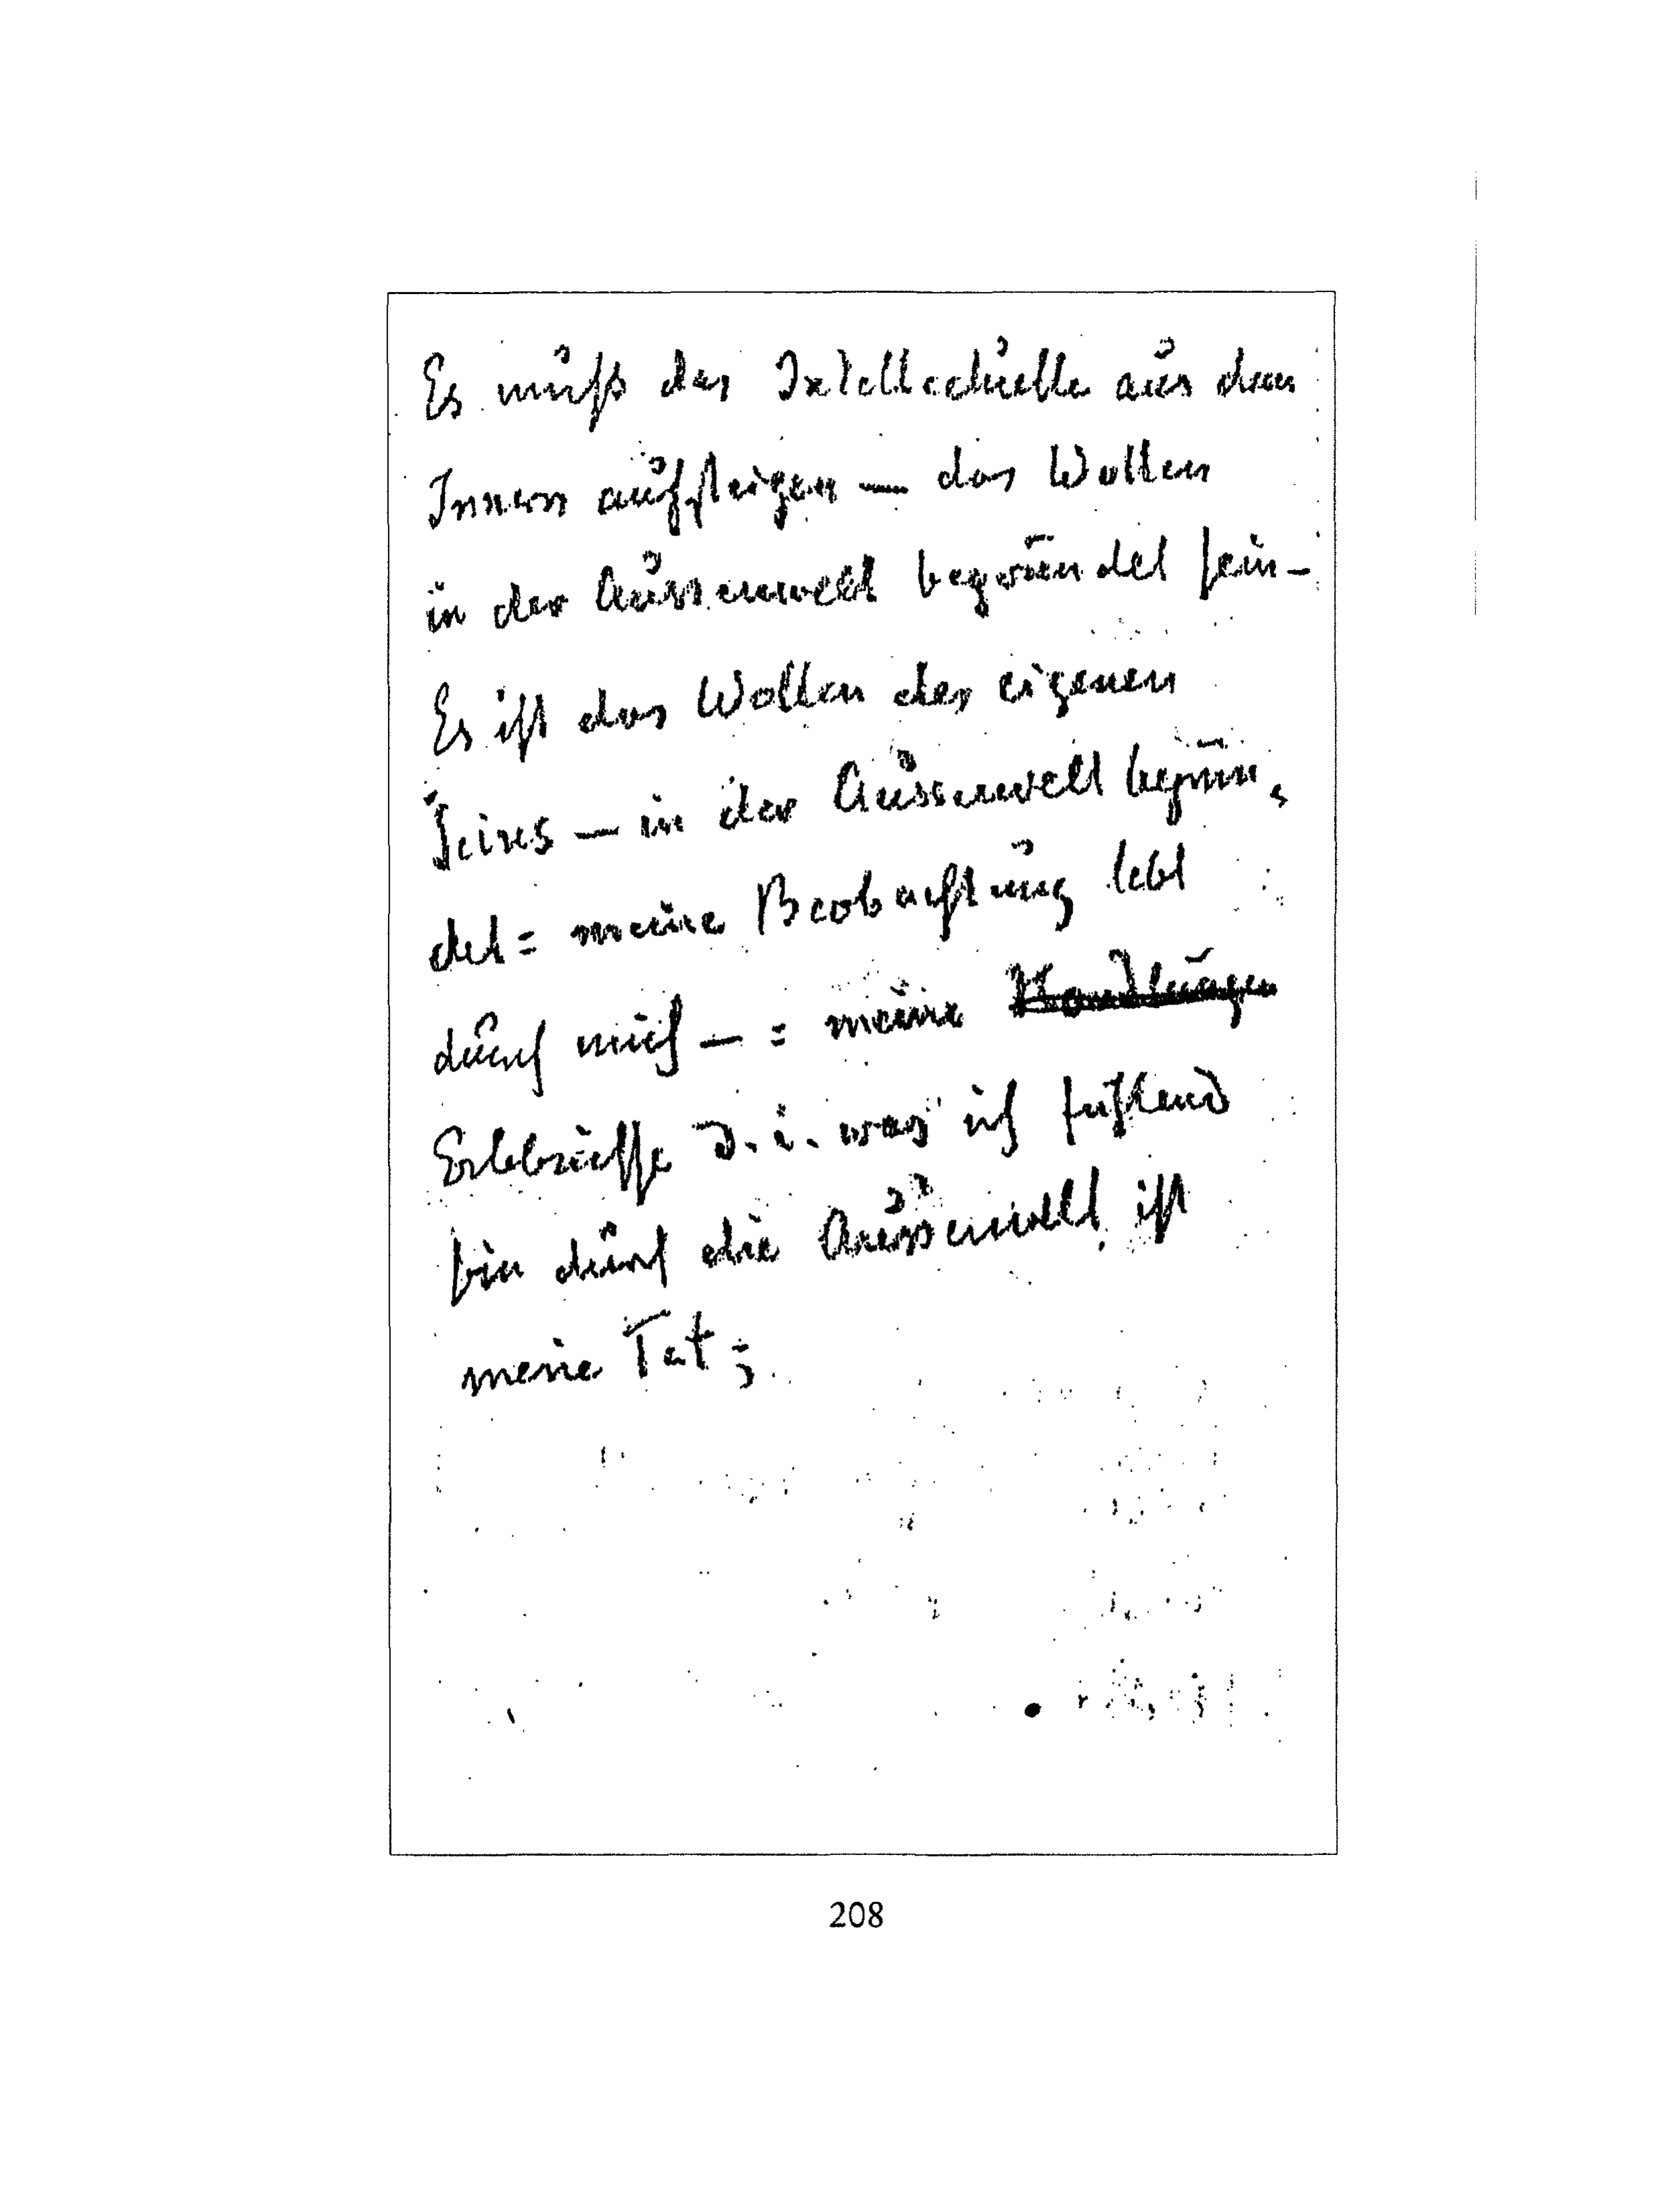 Es muß das Intellectuelle aus dem
Innern aufsteigen — das Wollen
in der Aussenwelt begründet sein –
Es ist das Wollen des eigenen
Seins — in der Aussenwelt begrün-
det = meine Beobachtung lebt
durch mich — = meine Handlungen
Erlebnisse d. i. was ich fühlend
bin durch die Aussenwelt, ist
meine Tat;
208